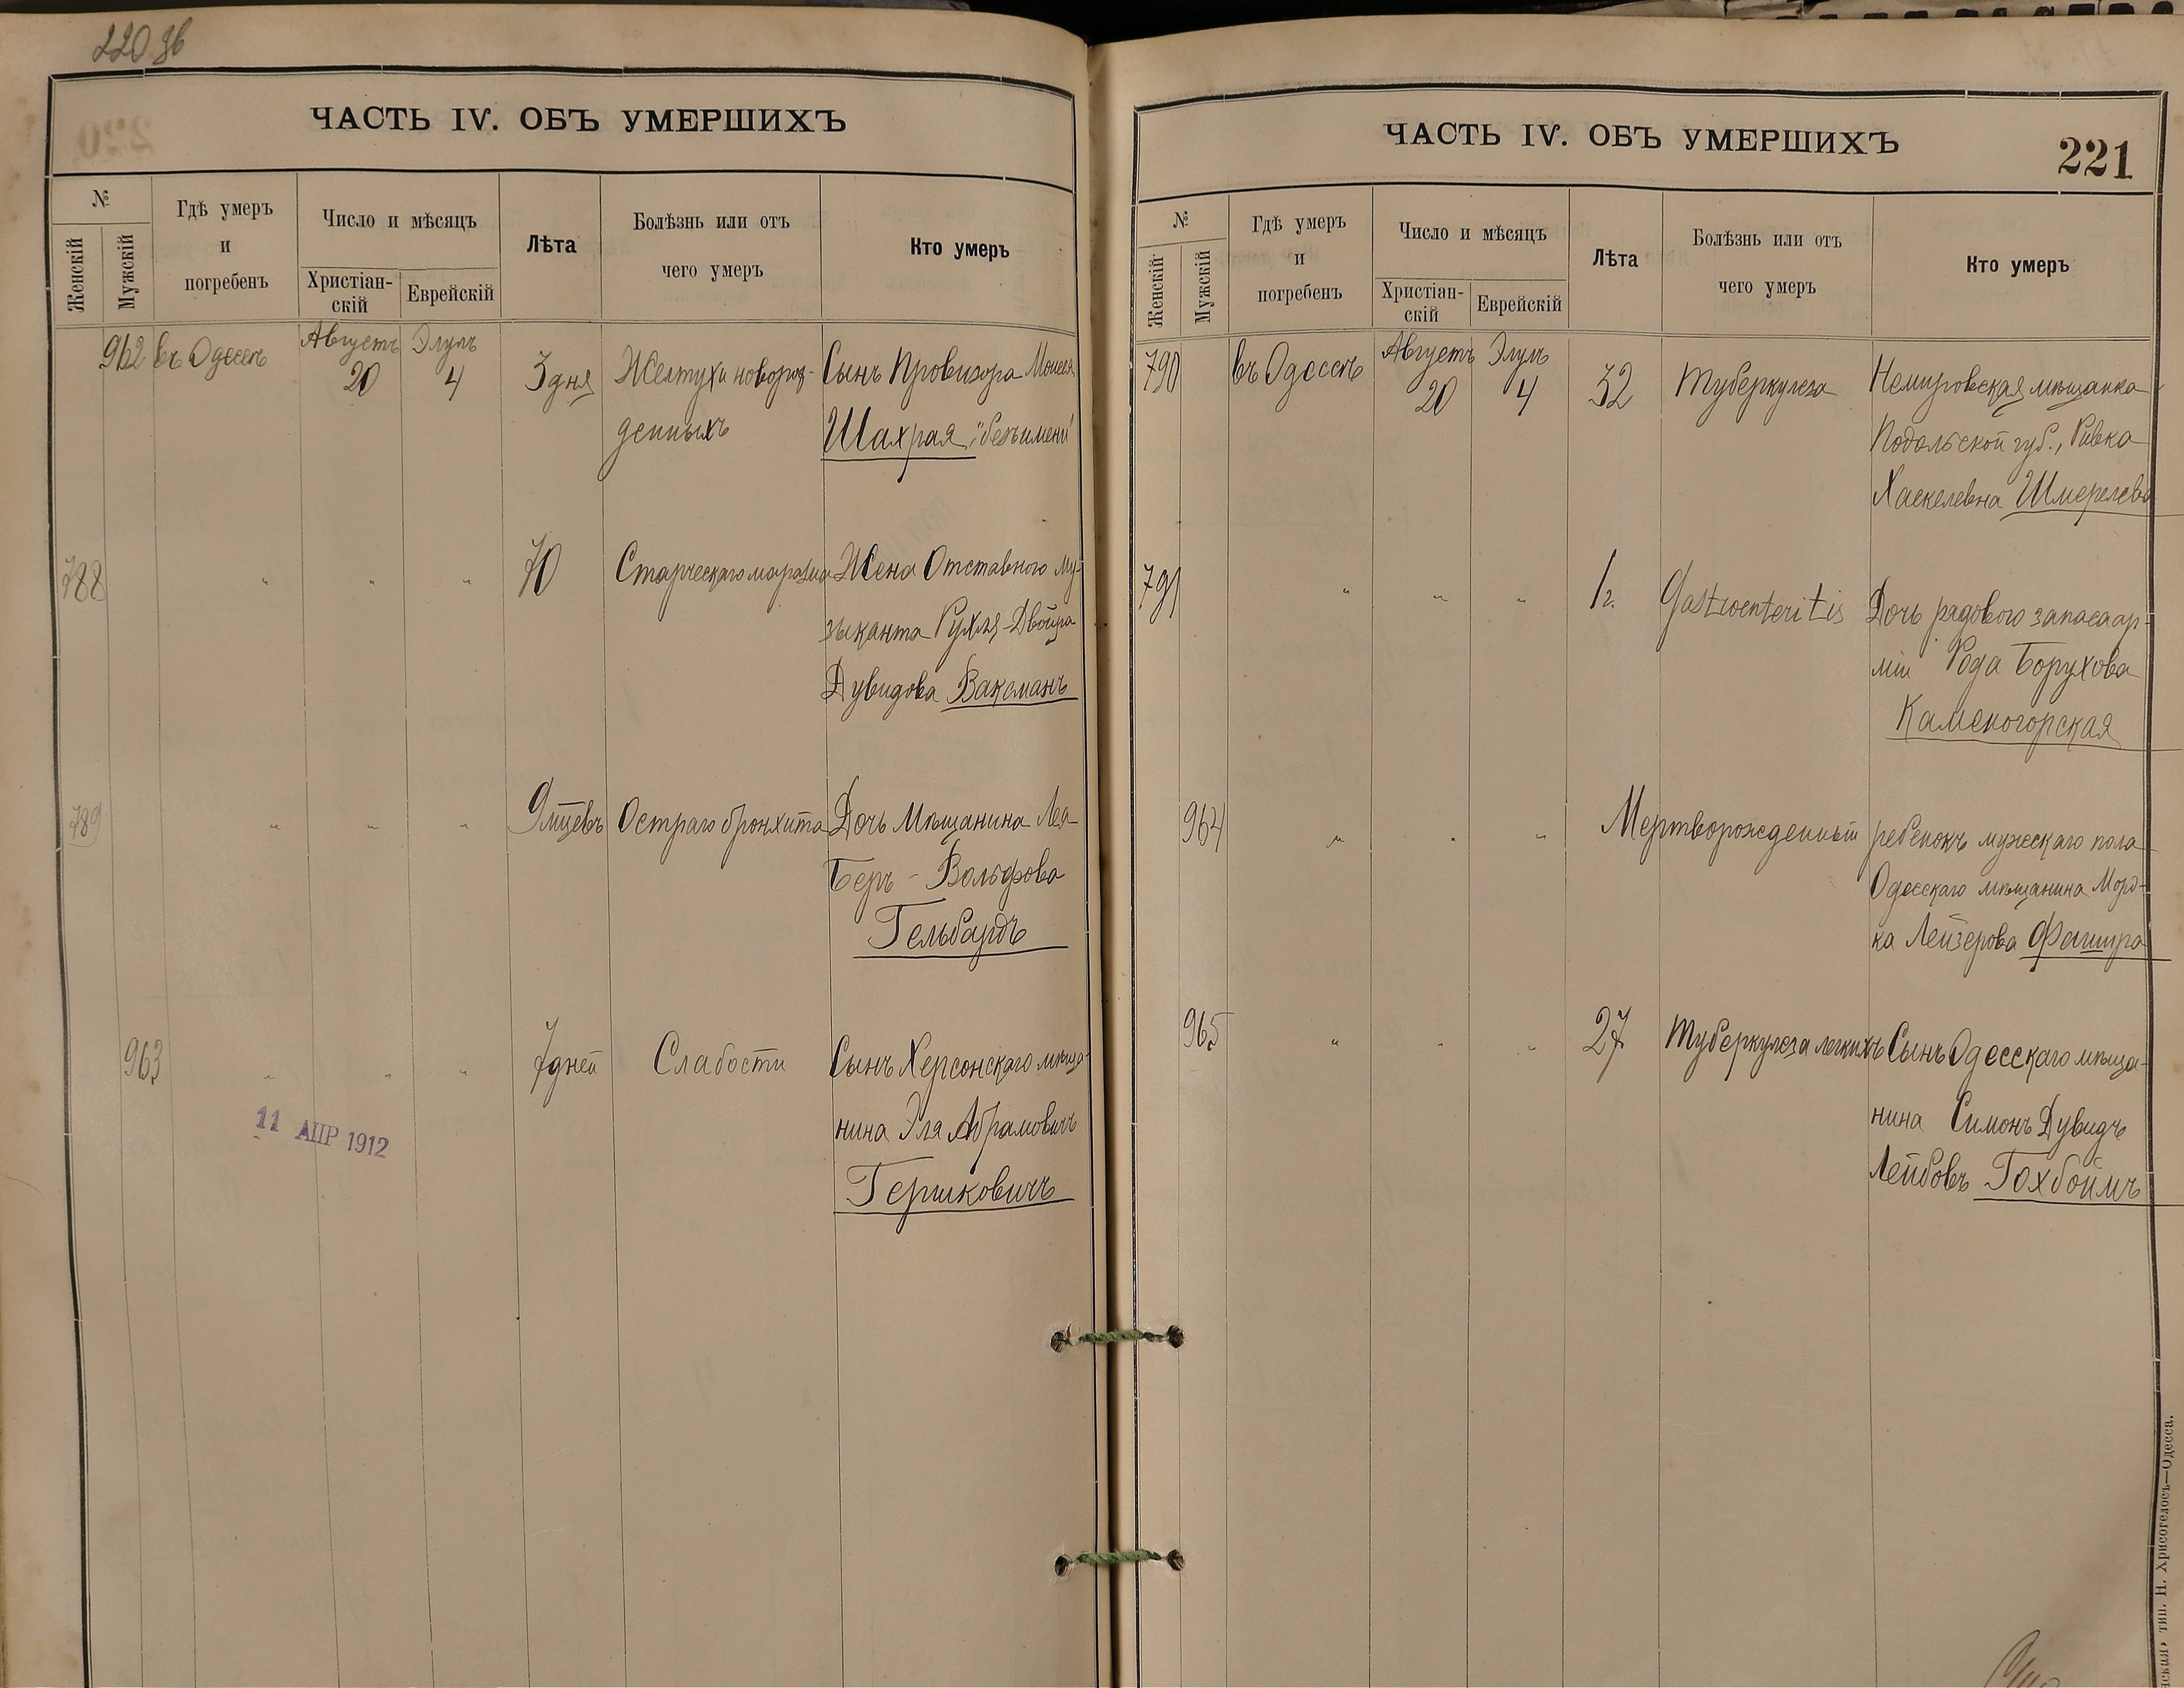 220 об
ЧАСТЬ IV. ОБЪ УМЕРШИХЪ
№
Женскій
Мужскій
Гдѣ умеръ
и
погребенъ
Число и мѣсяцъ
Христіан-
скій
Еврейскій
Лѣта
Болѣзнь или отъ
чего умеръ
Кто умеръ
962 въ Одессѣ Августъ 20 Элулъ 4 3 дня Желтухи новорож- Сынъ Провизора Моисея
денныхъ Шахрая, "безъ имени"
788 " " " 70 Старческаго маразма Жена Отставного му-
зыканта Рухля-Двойра
Дувидова Ваксманъ
789 " " " 9 мцевъ Остраго бронхита Дочь Мѣщанина Леа
Беръ-Вольфова
Гельбардъ
963 " " " 7 дней Слабости Сынъ Херсонскаго мѣща-
нина Эля Абрамовичъ
Гершковичъ
11 АПР 1912
ЧАСТЬ IV. ОБЪ УМЕРШИХЪ
221
№
Женскій
Мужскій
Гдѣ умеръ
и
погребенъ
Число и мѣсяцъ
Христіан-
скій
Еврейскій
Лѣта
Болѣзнь или отъ
чего умеръ
Кто умеръ
790 въ Одессѣ Августъ 20 Элулъ 4 32 Туберкулеза Немировская мѣщанка
Подольской губ., Ривка
Хаскелевна Шмерелева
791 " " " 1 г. Gastroenteritis Дочь рядового запаса ар-
міи Рода Борухова
Каменогорская
964 " " " Мертворожденный ребенокъ мужескаго пола
Одесскаго мѣщанина Морд-
ка Лейзерова
965 " " " 27 Туберкулеза легкихъ Сынъ Одесскаго мѣща-
нина Симонъ Дувидъ
Лейбовъ Гохбоймъ
тип. Н. Хрисогелосъ—Одесса.